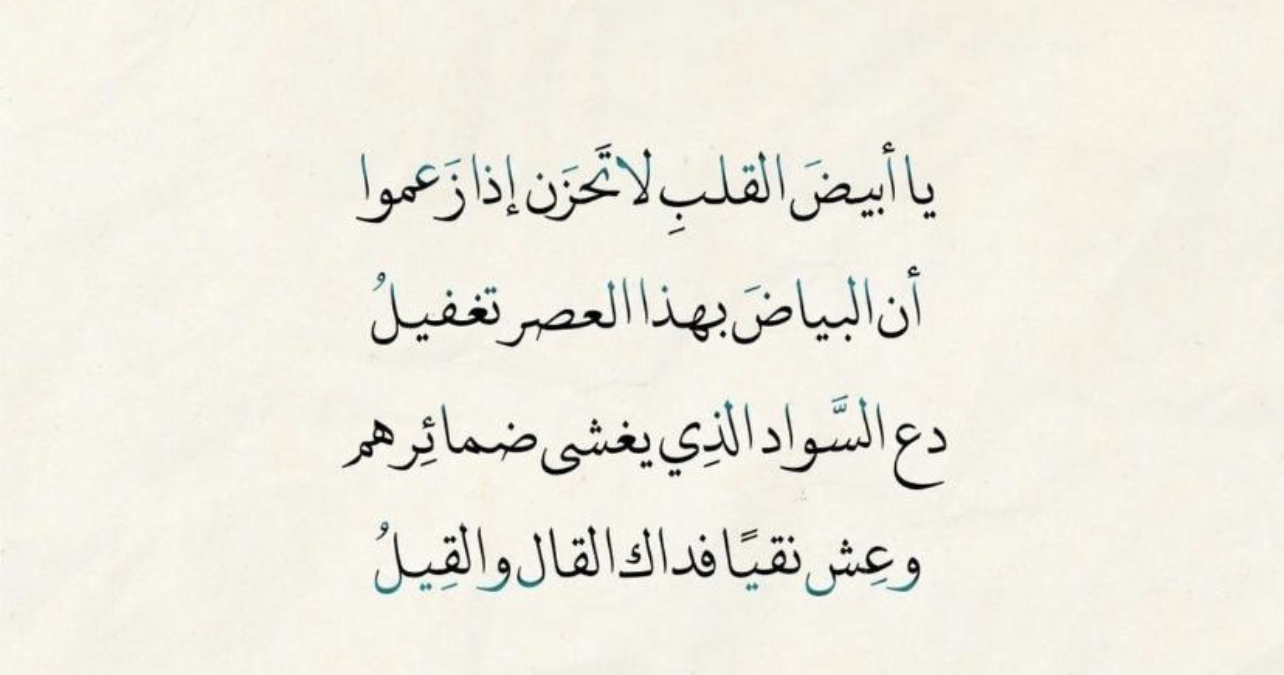 يا أبيضَ القلبِ لا تَحزَن إذا زَعموا
أن البياضَ بهذا العصر تغفيلُ
دع السَّواد الذِي يغشى ضمائِرهم
وعِش نقيًا فداك القال والقِيلُ